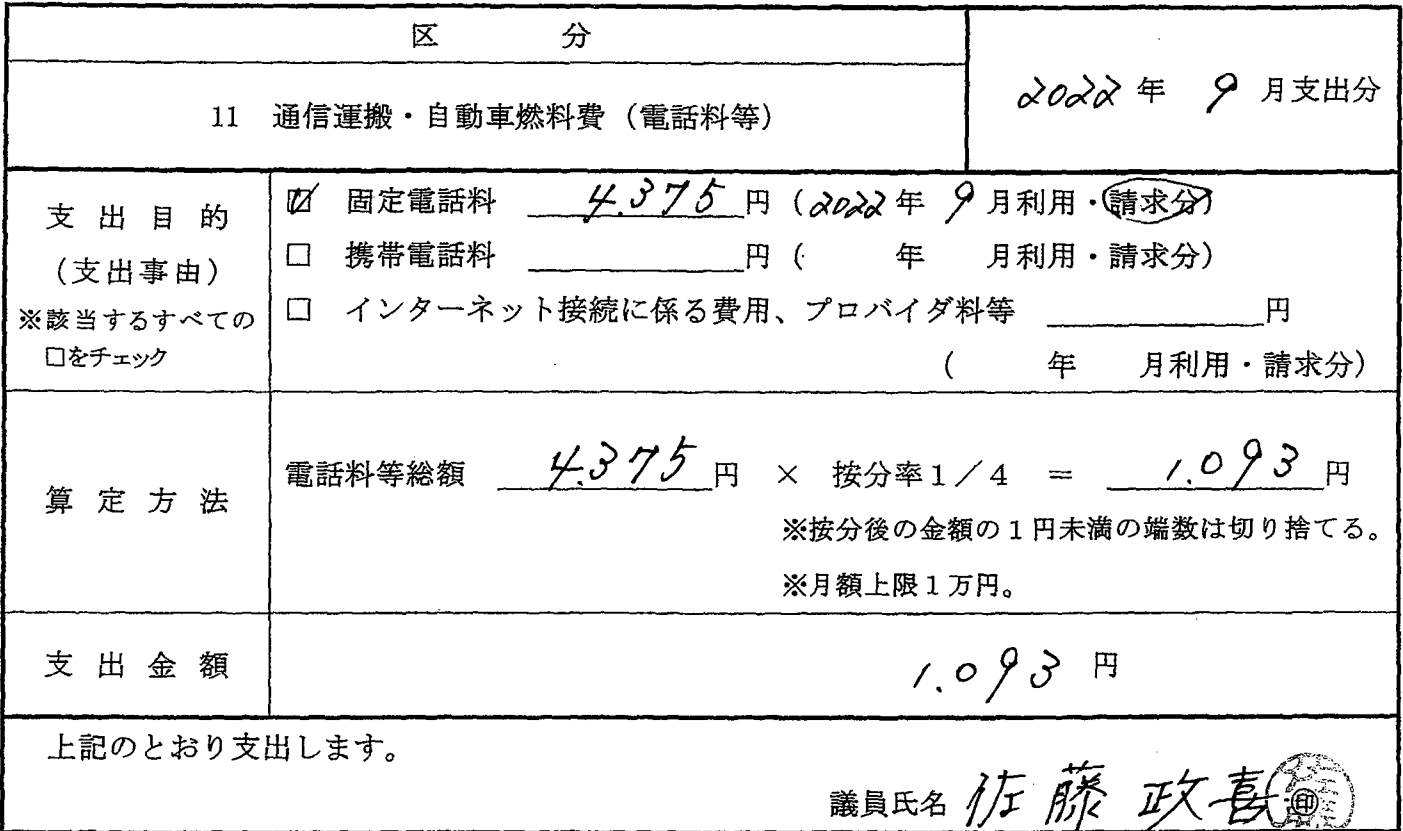 区 分
11 通信運搬・自動車燃料費（電話料等）
2022年 9月支出分
支出目的
（支出事由）
※該当するすべての
□をチェック
☑ 固定電話料 4.375円（2022年 9月利用・請求分）
□ 携帯電話料 円（ 年 月利用・請求分）
□ インターネット接続に係る費用、プロバイダ料等 円
（ 年 月利用・請求分）
算定方法
電話料等総額 4.375円 × 按分率1／4 ＝ 1.093円
※按分後の金額の1円未満の端数は切り捨てる。
※月額上限1万円。
支出金額
1.093 円
上記のとおり支出します。
議員氏名 佐藤 政喜 ㊞